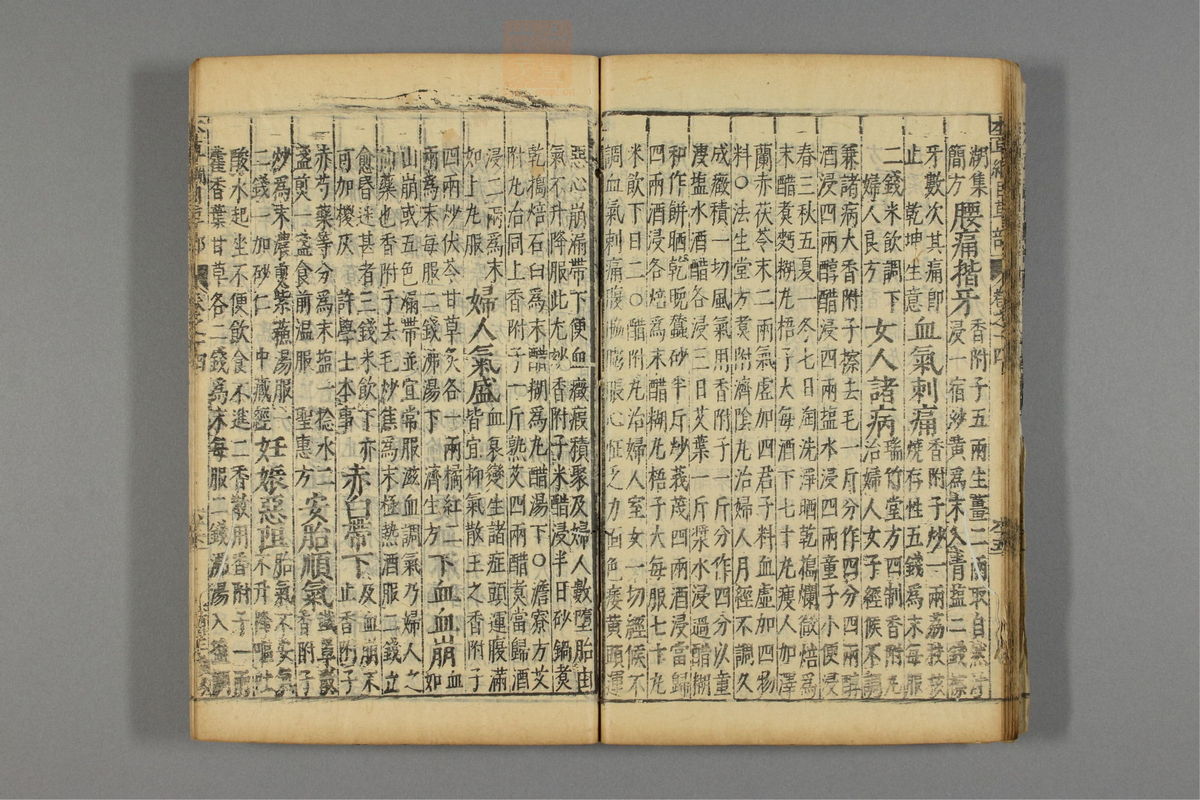 湖集簡方 腰痛揩牙 香附子五兩生薑二兩取自然汁
浸一宿炒黃為末入青塩二錢擦
牙數次其痛即止 乾坤生意 血氣刺痛 香附子炒一兩荔枝核
燒存性五錢為末每服
二錢米飲調下 婦人良方 女人諸病 瑞竹堂方四制香附丸
治婦人女子經候不調
兼諸病大香附子擦去毛一斤分作四分四兩醇
酒浸四兩醇醋浸四兩塩水浸四兩童子小便浸
春三秋五夏一冬七日淘洗淨晒乾搗爛微焙為
末醋煮麪糊丸梧子大每酒下七十丸瘦人加澤
蘭赤茯苓末二兩氣虛加四君子料血虛加四物
料○法生堂方煮附濟陰丸治婦人月經不調久
成癥積一切風氣用香附子一斤分作四分以童
溲塩水酒醋各浸三日艾葉一斤漿水浸過醋糊
和作餅晒乾晚蠶砂半斤炒莪茂四兩酒浸當歸
四兩酒浸各焙為末醋糊丸梧子大每服七十丸
米飲下日二○醋附丸治婦人室女一切經候不
調血氣刺痛腹脇膨脹心怔乏力面色痿黃頭運
惡心崩漏帶下便血癥瘕積聚及婦人數墮胎由
氣不升降服此尤妙香附子米醋浸半日砂鍋煮
乾搗焙石臼為末醋糊為丸醋湯下○澹寮方艾
附丸治同上香附子一斤熟艾四兩醋煮當歸酒
浸二兩為末如上丸服 婦人氣盛 血衰變生諸症頭運腹滿
皆宜抑氣散主之香附子
四兩炒茯苓甘草炙各一兩橘紅二
兩為末每服二錢沸湯下 濟生方 下血血崩 血如
山崩或五色漏帶並宜常服滋血調氣乃婦人之
仙藥也香附子去毛炒焦為末極熱酒服二錢立
愈昏迷甚者三錢米飲下亦
可加㯶灰 許學士本事 赤白帶下 及血崩不
止香附子
赤芍藥等分為末塩一捻水二
盞煎一盞食前溫服 聖惠方 安胎順氣 鐵罩散
香附子
炒為末濃煎紫蘇湯服
二錢一加砂仁 中藏經 妊娠惡阻 胎氣不安氣
不升降嘔吐
酸水起坐不便飲食不進二香散用香附子一兩
藿香葉甘草各二錢為末每服二錢沸湯入塩調